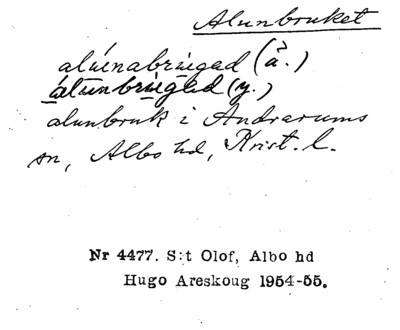 Alunbruket
alúenabrúgad (å.)
álunbrúgad (y.)
alunbruk i Andrarums
sn, Albo hd, Krist. l.
Nr 4477. S:t Olof, Albo hd
Hugo Areskoug 1954-55.